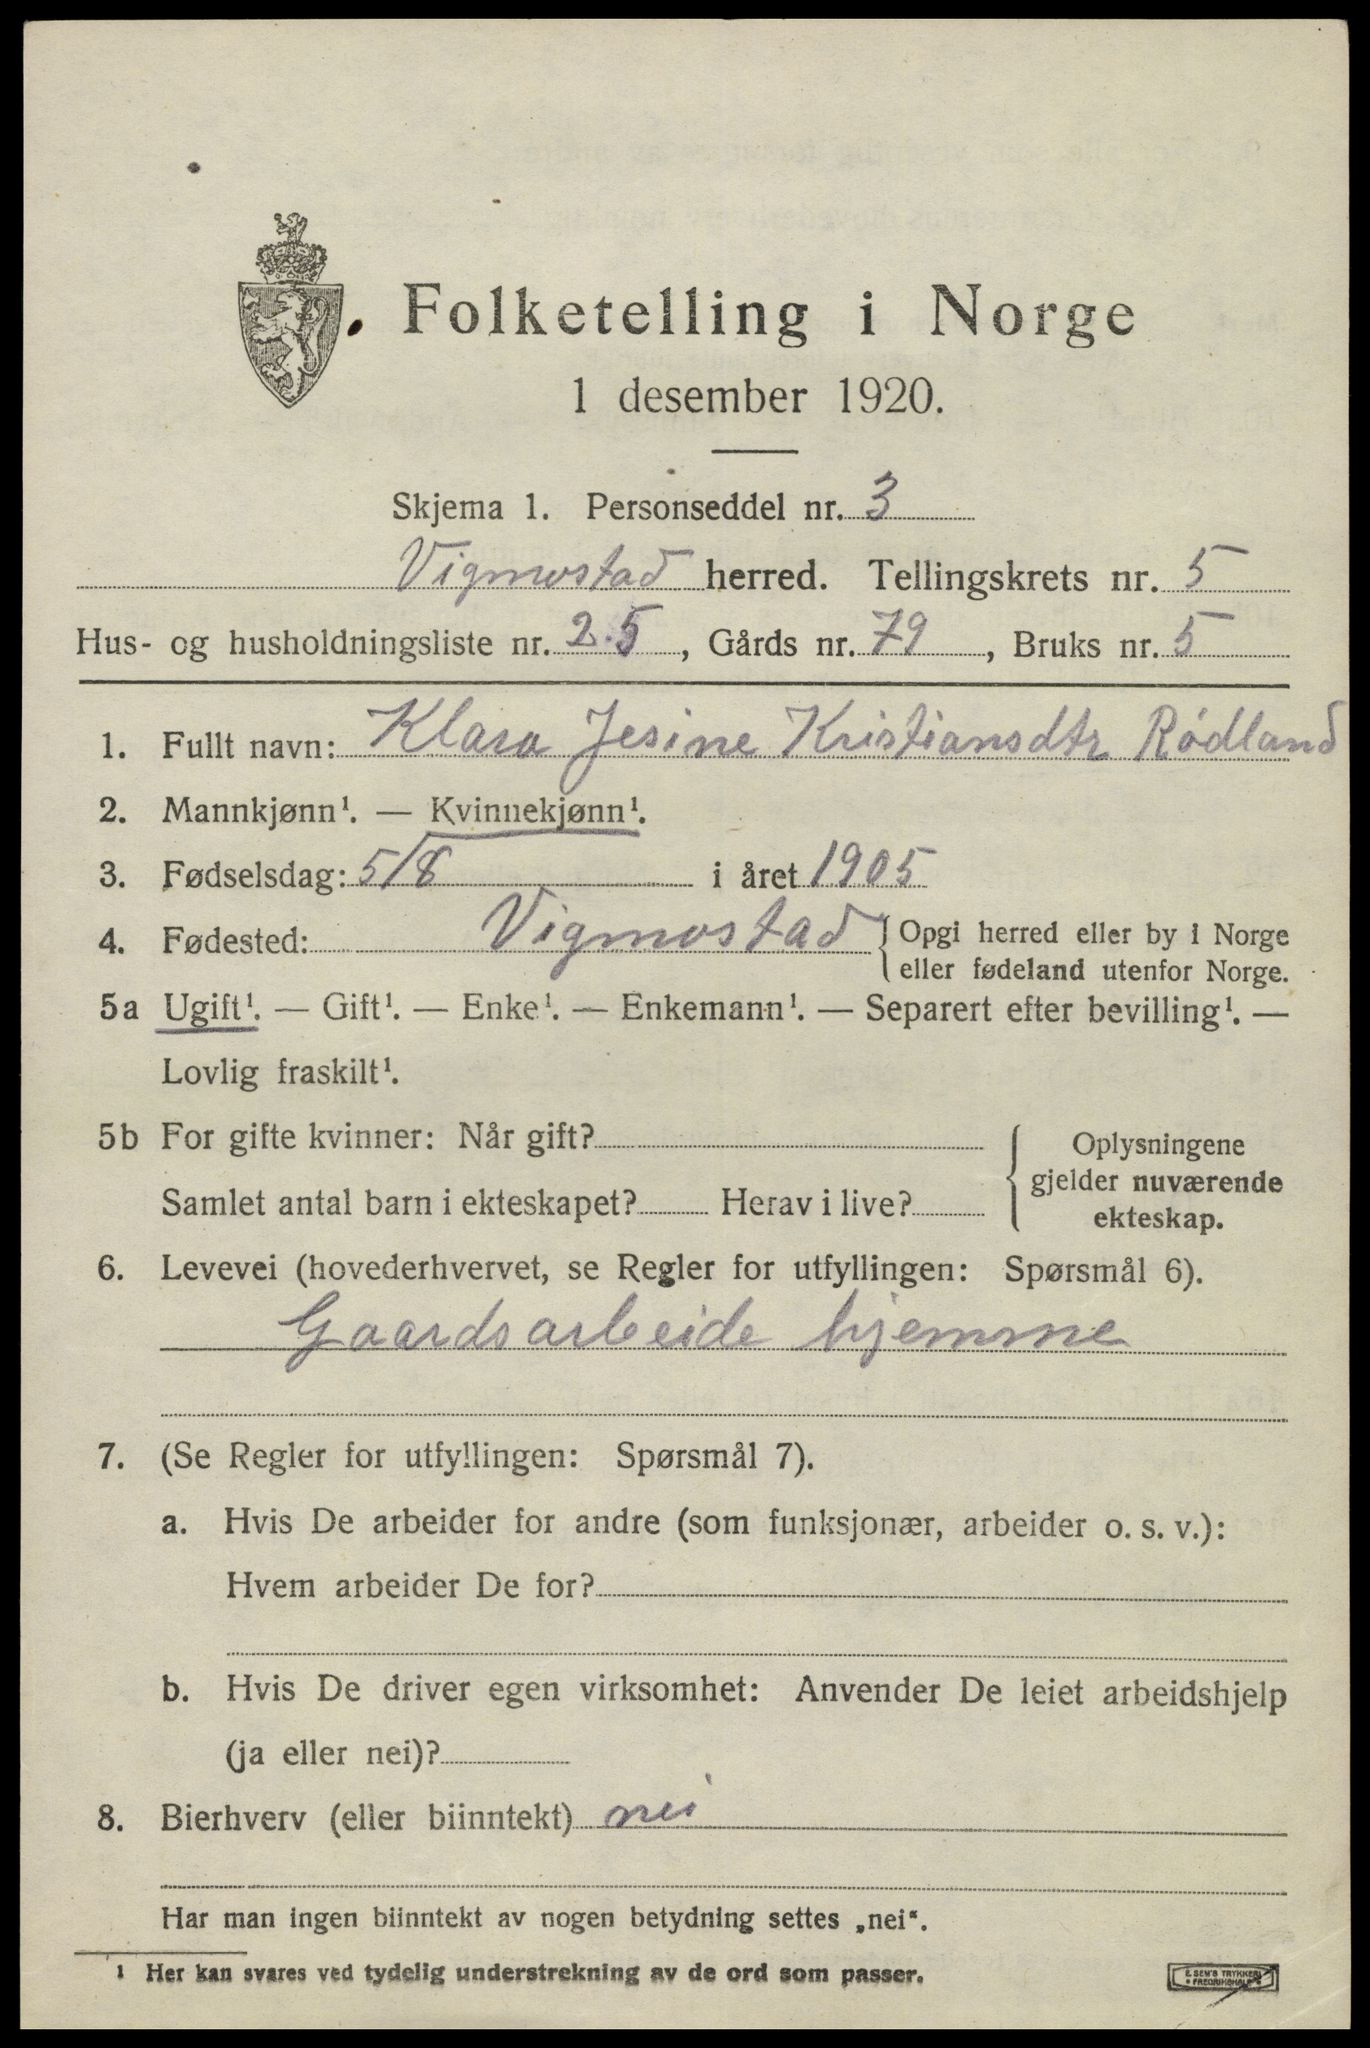 Folketelling i Norge
1 desember 1920.
Skjema 1. Personseddel nr. 3
Vigmostad herred. Tellingskrets nr. 5
Hus- og husholdningsliste nr. 25, Gårds nr. 79, Bruks nr. 5
1. Fullt navn: Klara Jesine Kristiansdtr Rødland
2. Mannkjønn¹. — Kvinnekjønn¹.
3. Fødselsdag: 5/8 i året 1905
4. Fødested: Vigmostad { Opgi herred eller by i Norge
eller fødeland utenfor Norge.
5a Ugift¹. — Gift¹. — Enke¹. — Enkemann¹. — Separert efter bevilling¹. —
Lovlig fraskilt¹.
5b For gifte kvinner: Når gift?
Samlet antal barn i ekteskapet? Herav i live?
{ Oplysningene
gjelder nuværende
ekteskap.
6. Levevei (hovederhvervet, se Regler for utfyllingen: Spørsmål 6).
Gaardsarbeide hjemme
7. (Se Regler for utfyllingen: Spørsmål 7).
a. Hvis De arbeider for andre (som funksjonær, arbeider o. s. v.):
Hvem arbeider De for?
b. Hvis De driver egen virksomhet: Anvender De leiet arbeidshjelp
(ja eller nei)?
8. Bierhverv (eller biinntekt) nei
Har man ingen biinntekt av nogen betydning settes „nei“.
¹ Her kan svares ved tydelig understrekning av de ord som passer.
E. SEM'S TRYKKERI
FREDRIKSHALD